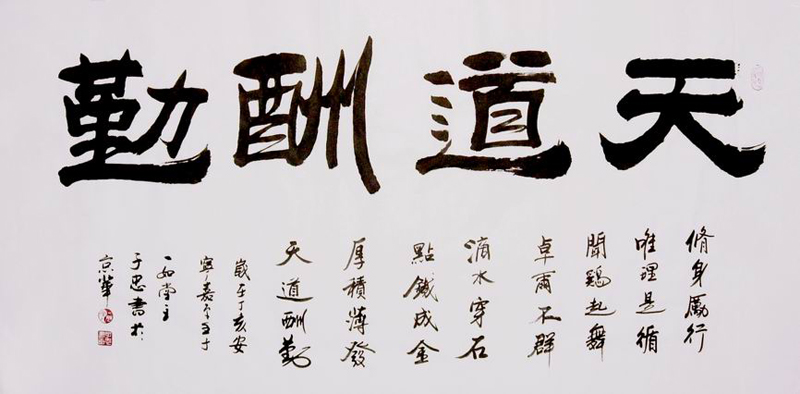 天道酬勤
脩身勵行
唯理是循
聞鷄起舞
卓爾不群
滴水穿石
點鐵成金
厚積薄發
天道酬勤
歲在丁亥安
一如堂主
于忠書於
京華